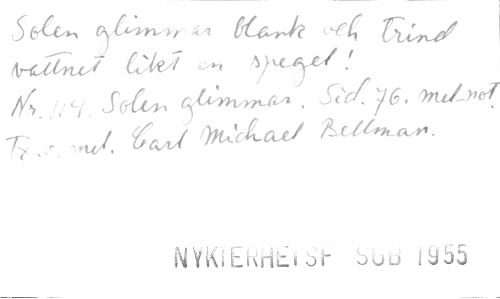 Solen glimmar blank och trind
vattnet likt en spegel!
Nr. 114. Solen glimmar. Sid. 76. mel_not.
Tx. o. mel. Carl Michael Bellman.
NYKTERHETSF SOB 1955